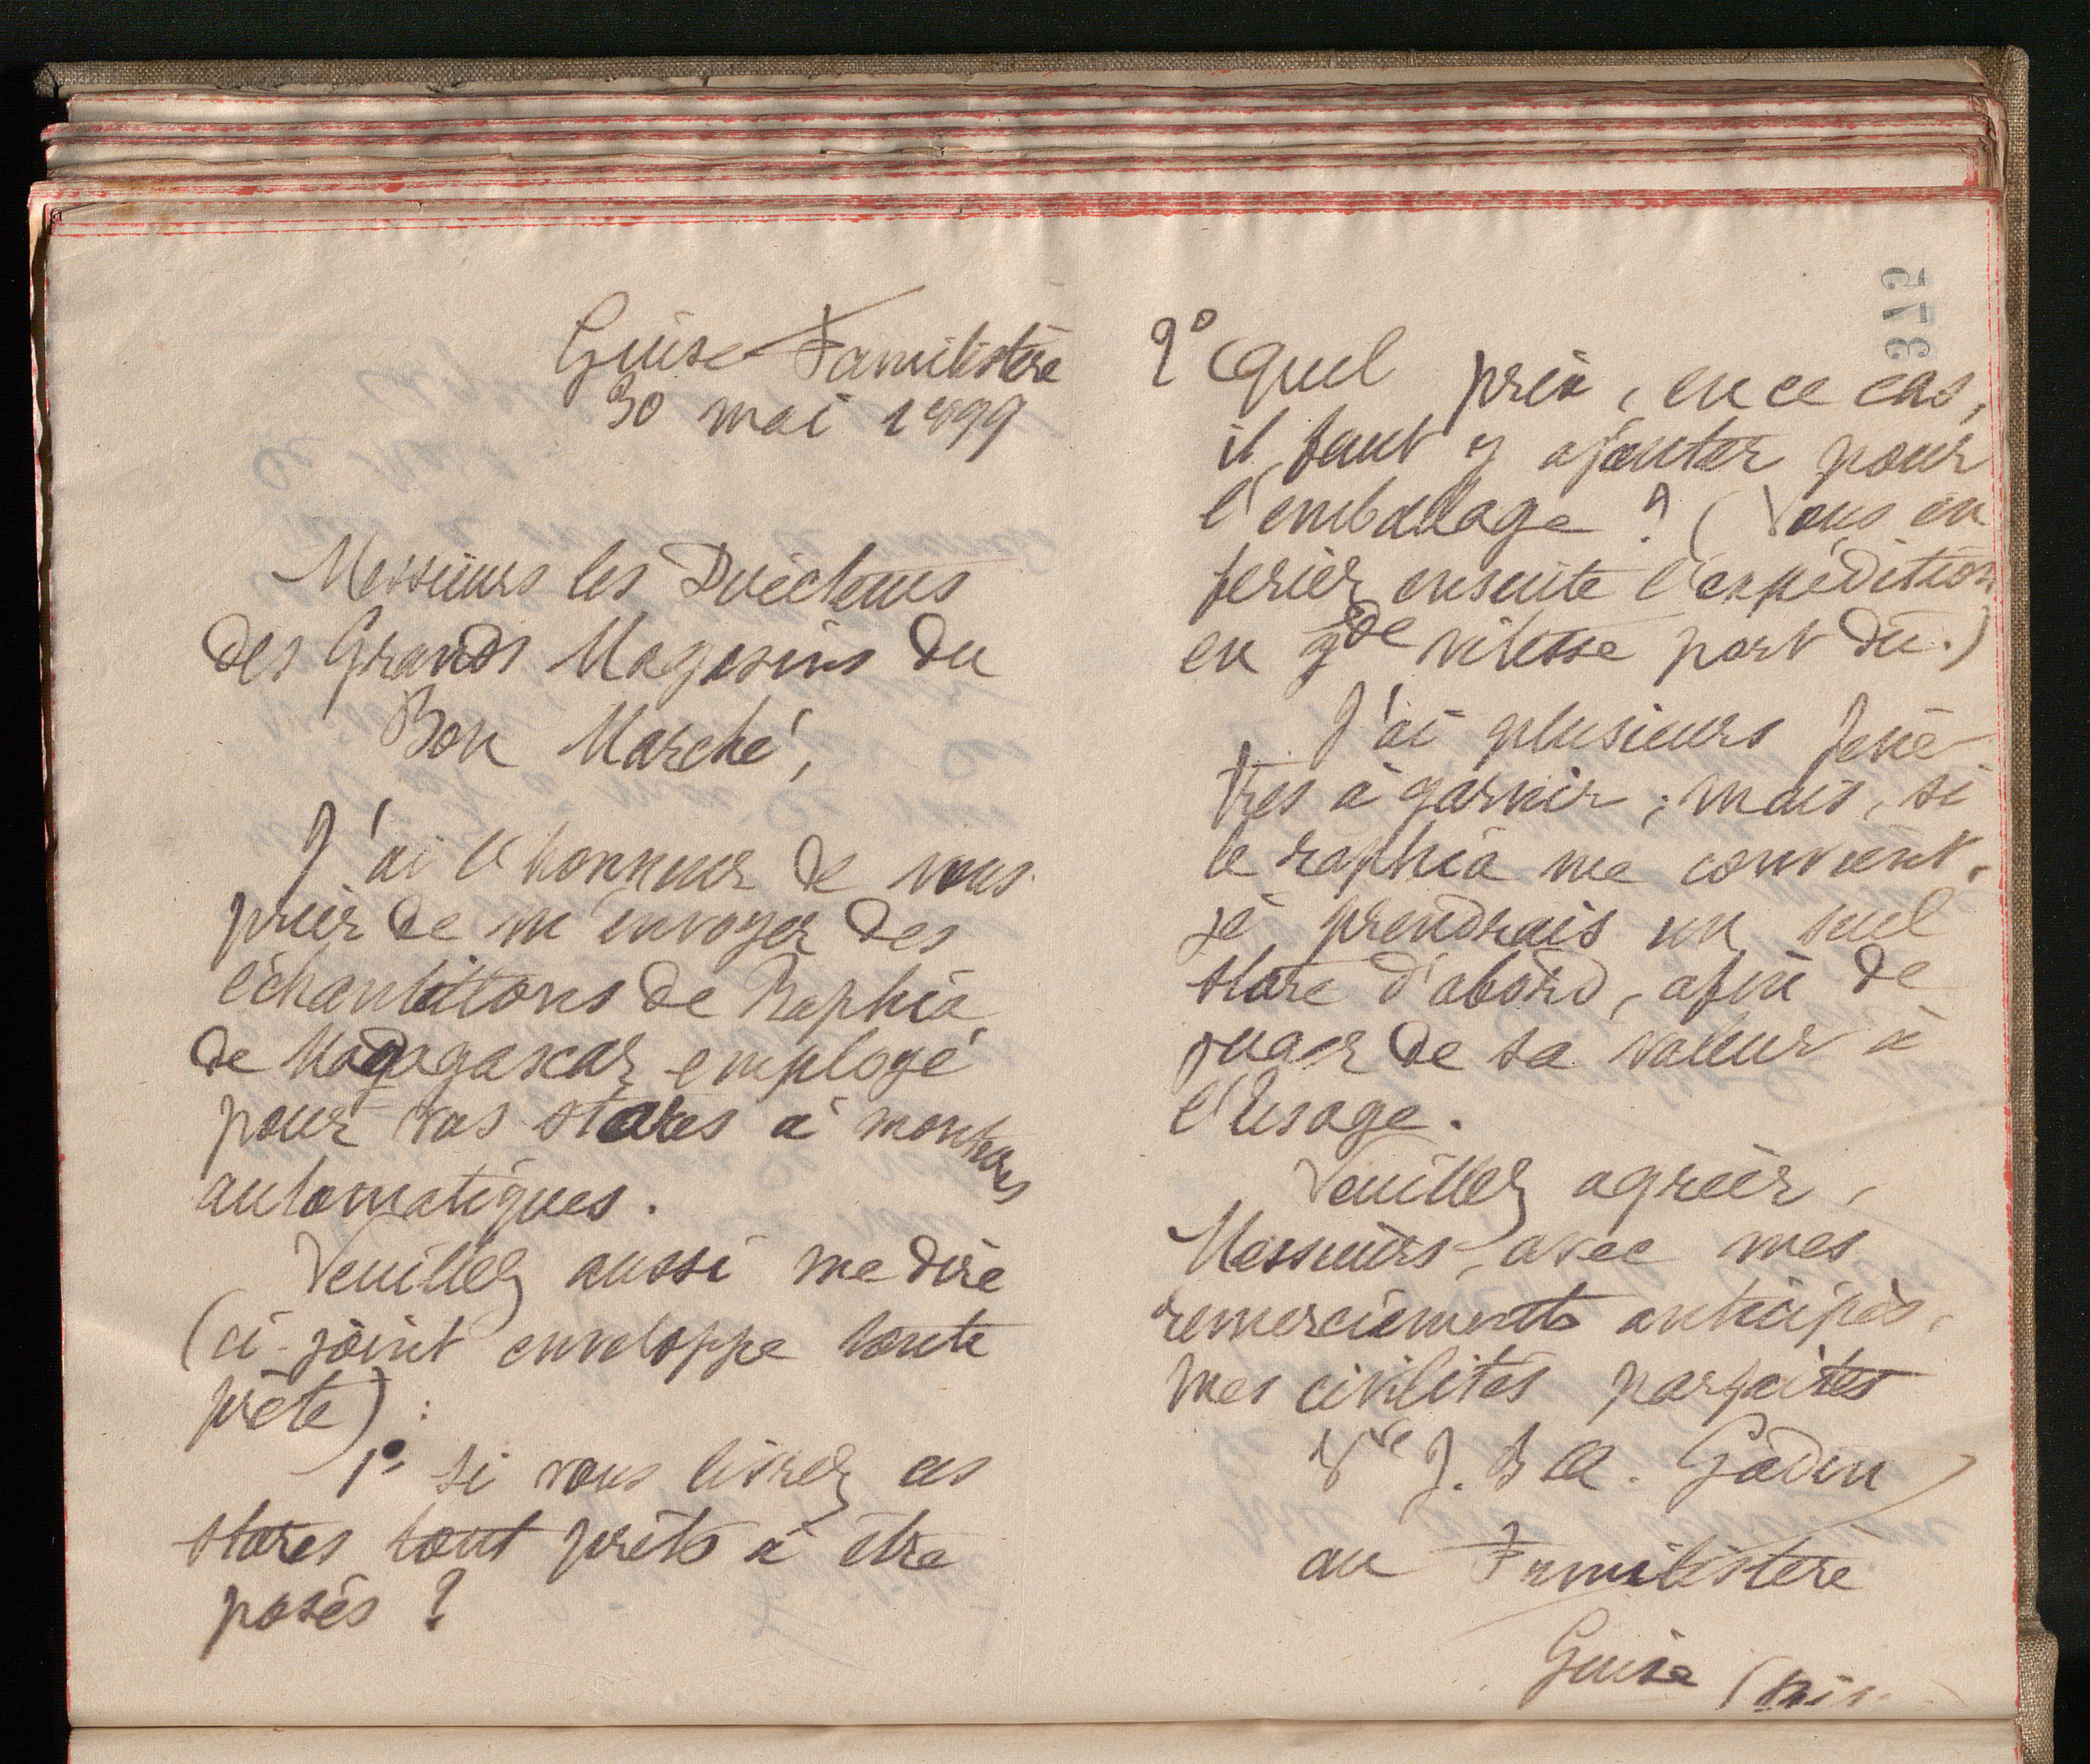 Guise Familistère
30 mai 1899
Messieurs les Directeurs
des Grands Magasins du
Bon Marché,
J'ai l'honneur de vous
prier de m'envoyer des
échantillons de Raphia
de Madagascar employé
pour vos stores à montures
automatiques.
Veuillez aussi me dire
(ci-joint enveloppe toute
prête) :
1° si vous livrez ces
stores tout prêts à être
posés ?
375
2° Quel prix, en ce cas,
il faut y ajouter pour
l'emballage ? (Vous en
feriez ensuite l'expédition
en gde vitesse port dû.)
J'ai plusieurs fenê-
tres à garnir ; mais, si
le raphia me convient,
je prendrais un seul
store d'abord, afin de
juger de sa valeur à
l'usage.
Veuillez agréer,
Messieurs, avec mes
remerciements anticipés,
mes civilités parfaites
Vve J. B A. Godin
au Familistère
Guise (Aisne